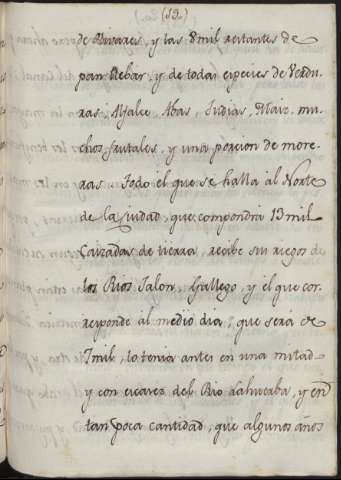 (19.)
de Olivares, y las 8 mil restantes de
pan llebar, y de todas especies de Verdu-
ras, Alfalce, Abas, Judias, Maiz, mu-
chos frutales, y una porcion de more-
ras. Todo el que se halla al Norte
de la Ciudad, que compondrá 13 mil
Caizadas de tierra, recibe sus riegos de
los Rios Jalon, Gallego, y el que cor-
responde al medio dia, que será de
7 mil, lo tenia antes en una mitad
y con escasez del Rio
tan poca cantidad, que algunos años